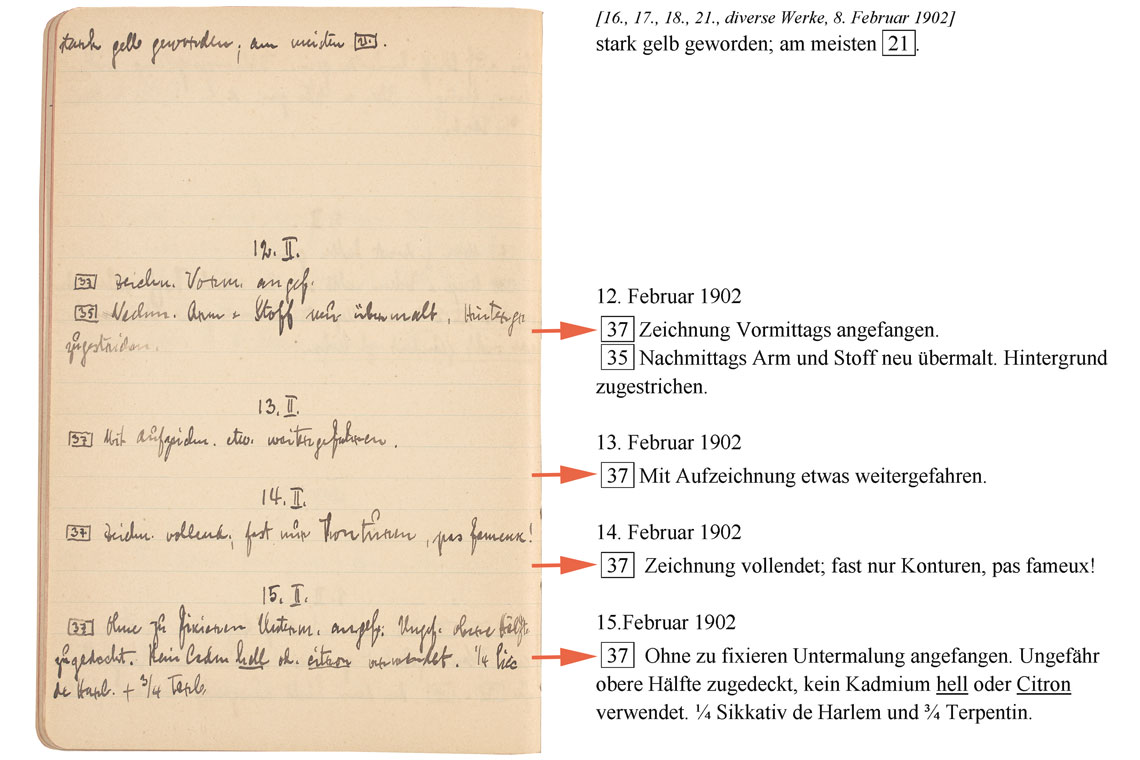 stark gelb geworden; am meisten 21.
12. II.
37 Zeichn. Vorm. angef.
35 Nachm. Arm + Stoff neu übermalt. Hintergr
zugestrichen.
13. II.
37 Mit Aufzeichn. etw. weitergefahren.
14. II.
37 Zeichn. vollend.; fast nur Konturen, pas fameux!
15. II.
37 Ohne zu fixieren Unterm. angef. Ungef. obere Hälfte
zugedeckt. Kein Cadm hell od. citron verwendet. 1/4 Sicc
de Harl. + 3/4 Terp.
[16., 17., 18., 21., diverse Werke, 8. Februar 1902]
stark gelb geworden; am meisten 21.
12. Februar 1902
37 Zeichnung Vormittags angefangen.
35 Nachmittags Arm und Stoff neu übermalt. Hintergrund
zugestrichen.
13. Februar 1902
37 Mit Aufzeichnung etwas weitergefahren.
14. Februar 1902
37 Zeichnung vollendet; fast nur Konturen, pas fameux!
15.Februar 1902
37 Ohne zu fixieren Untermalung angefangen. Ungefähr
obere Hälfte zugedeckt, kein Kadmium hell oder Citron
verwendet. ¼ Sikkativ de Harlem und ¾ Terpentin.